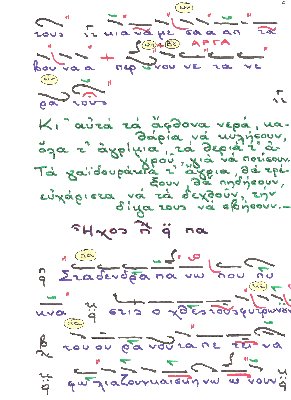 τους κι α να με σα α απ τα
ΑΡΓΑ
βου να α περ νου νε τα νε
ρα τους
Κι' αὐτά τά ἄφθονα νερά, κα-
θαρία νά κυλήσουν,
ὅλα τ' ἀγρίμια, τά θεριά τ' ἀ-
γροῦ, γιά νά ποτίσουν.
Τά γαϊδουράκια τ' ἄγρια, θά τρέ-
ξουν θά πηδήσουν,
εὐχάριστα νά τά δεχθοῦν, την
δίψα τους νά σβήσουν.-
Ἦχος πα
Στα δεν δρα πα νω που που
κνα στις ο χθες τους φυτρωνουν
του ου ρα νου τα πε τει να
φω λια ζουν και σκη νω ω νουν